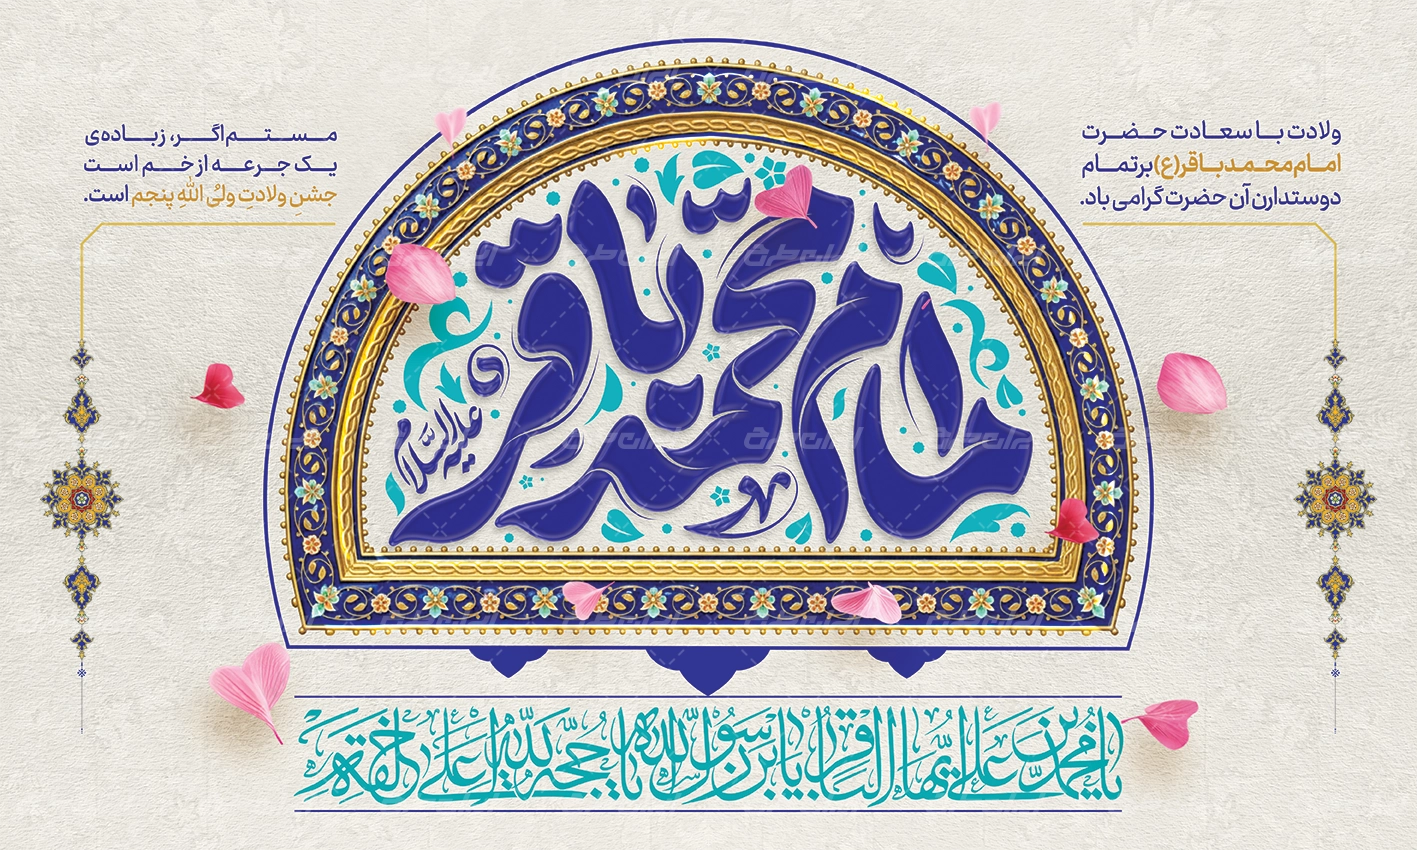 ولادت با سعادت حضرت
امام محمد باقر(ع) بر تمام
دوستدارن آن حضرت گرامی باد.
مستم اگر، ز باده‌ی
یک جرعه از خم است
جشنِ ولادتِ ولیُ اللهِ پنجم است.
امام محمد باقر
علیه السلام
یا محمد بن علی ایها الباقر یابن رسول الله یا حجة الله علی خلقه